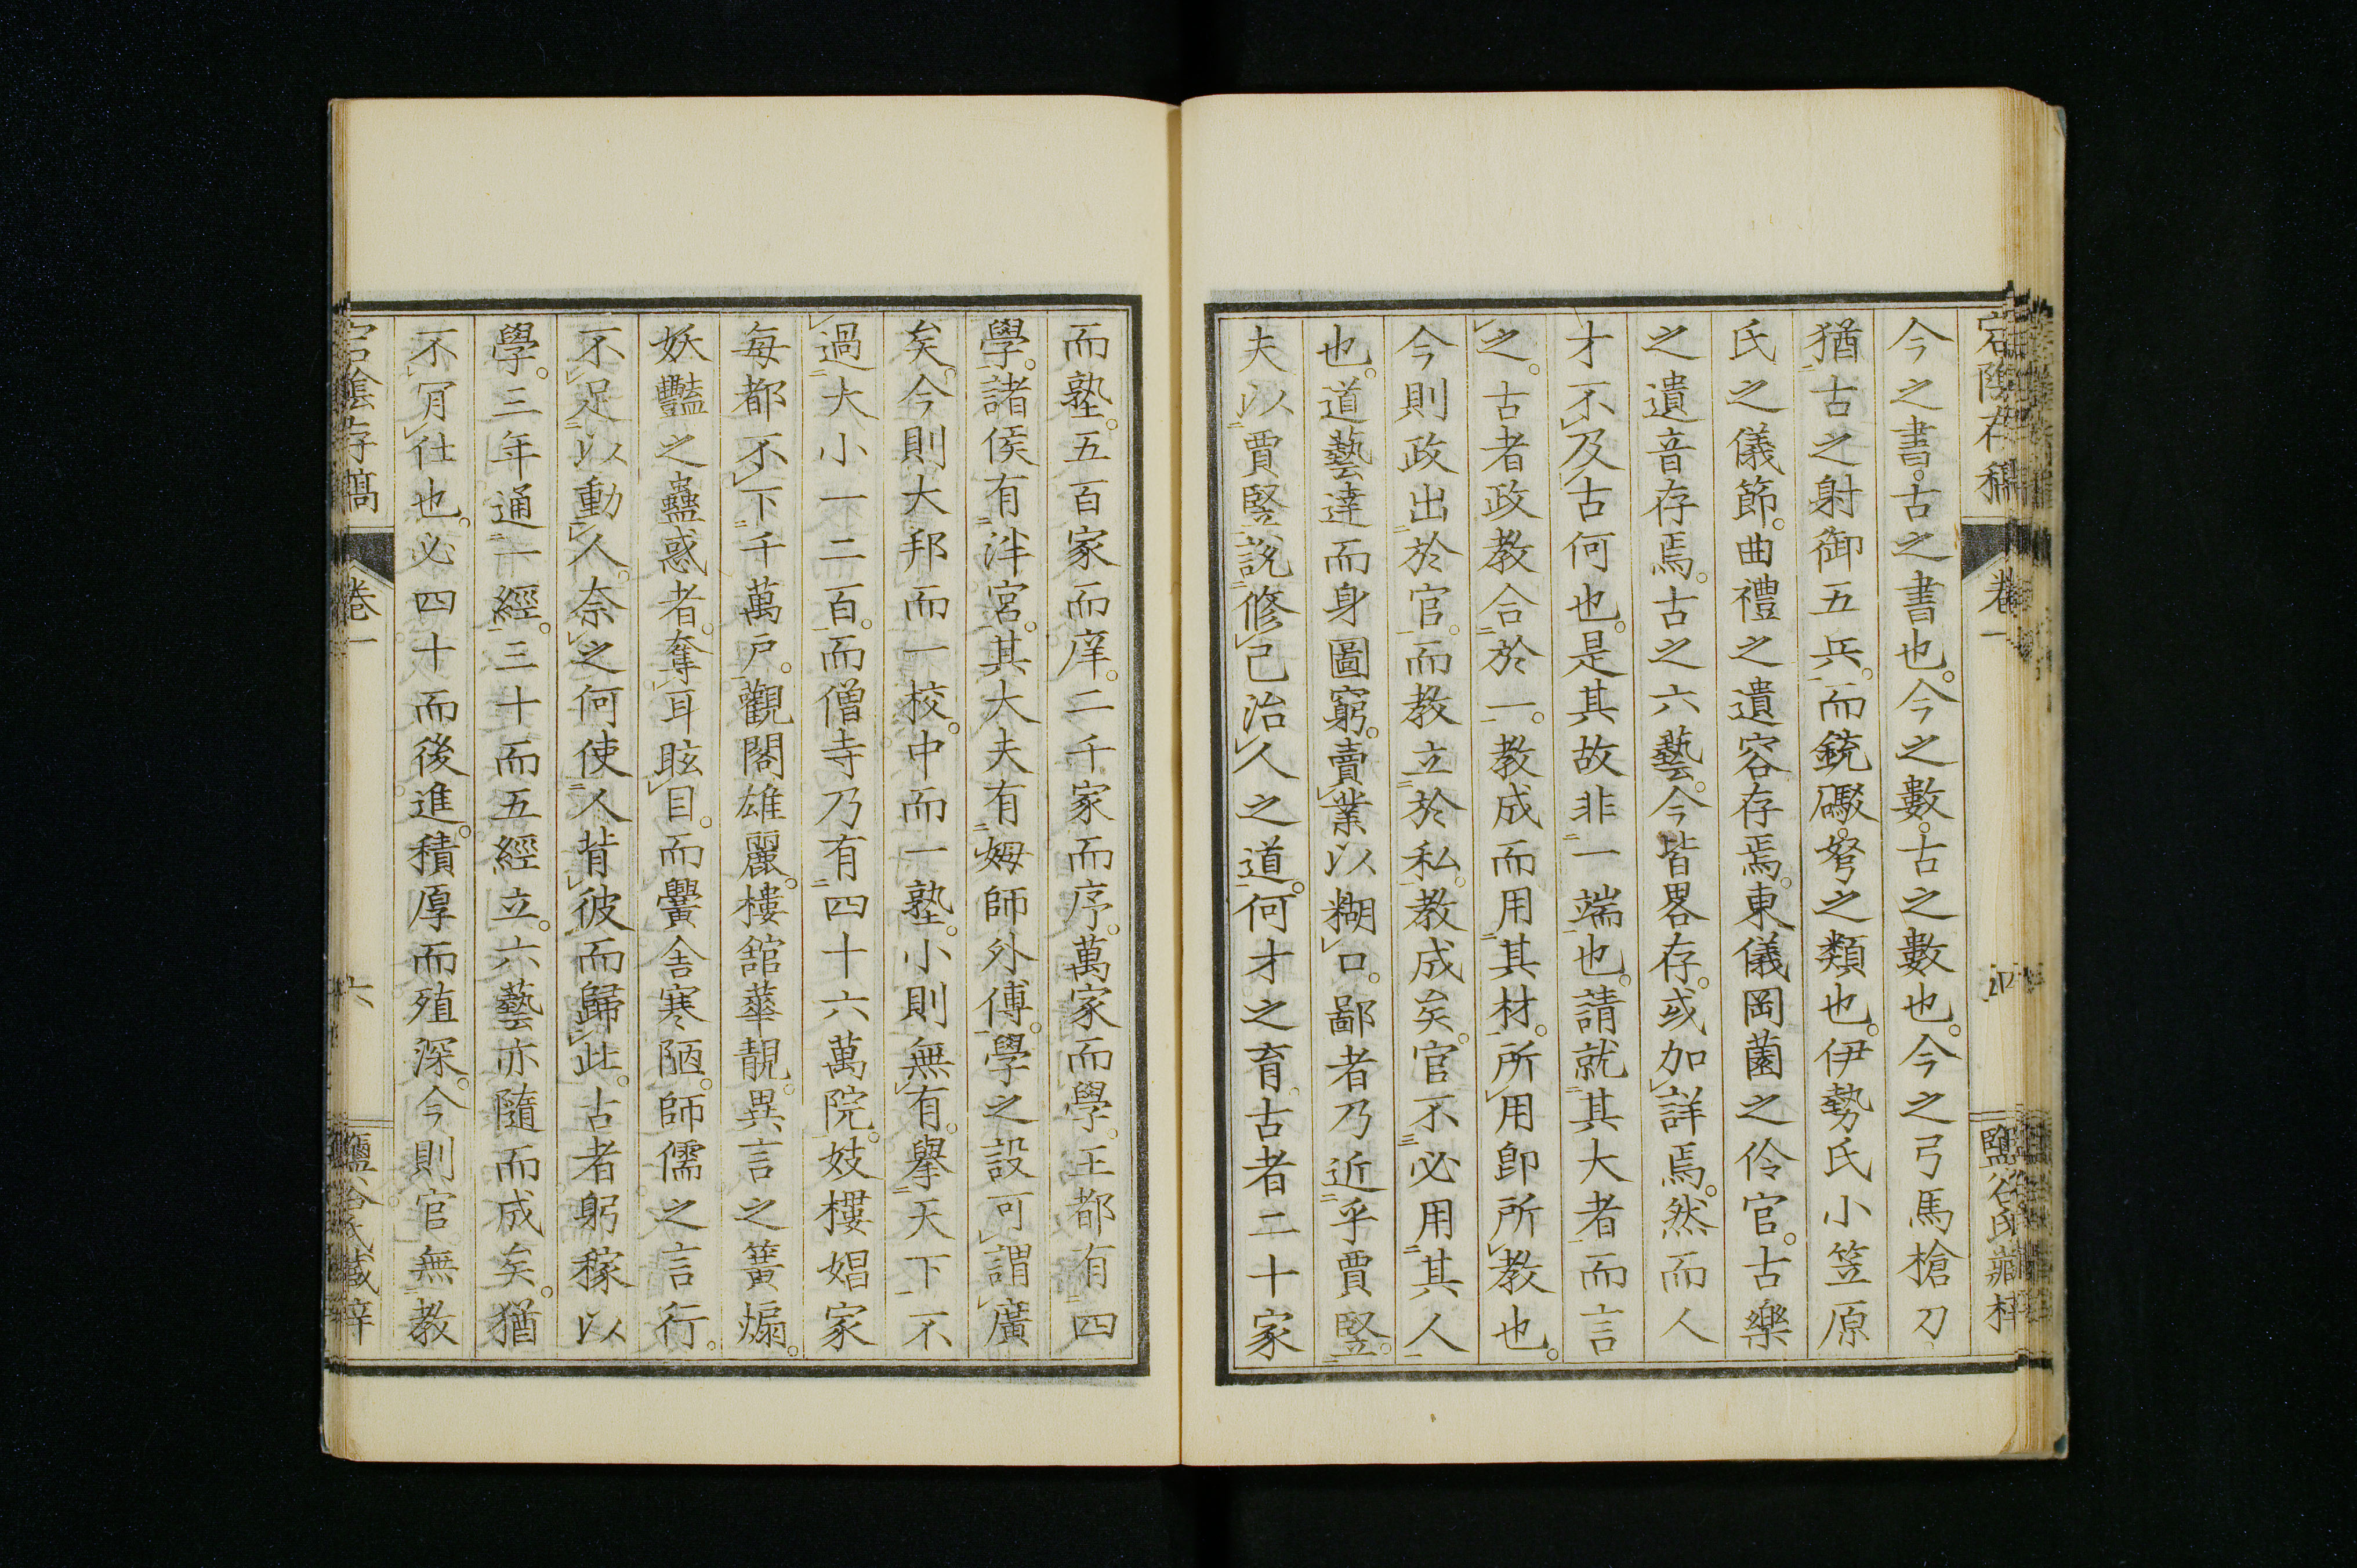 宕陰存稿 卷一 鹽谷氏藏梓
今之書。古之書也。今之數。古之數也。今之弓馬槍刀
猶古之射御五兵。而銃礮。弩之類也。伊勢氏小笠原
氏之儀節。曲禮之遺容存焉。東儀岡薗之伶官。古樂
之遺音存焉。古之六藝。今皆畧存。或加詳焉。然而人
才不及古何也。是其故非一端也。請就其大者而言
之。古者政教合於一。教成而用其材。所用卽所教也。
今則政出於官。而教立於私。教成矣。官不必用其人
也。道藝達而身圖窮。賣業以糊口。鄙者乃近乎賈豎。
夫以賈豎說修己治人之道。何才之育。古者二十家
而塾。五百家而庠。二千家而序。萬家而學。王都有四
學。諸侯有泮宮。其大夫有姆師外傅。學之設可謂廣
矣。今則大邦而一校。中而一塾。小則無有。擧天下不
過大小一二百。而僧寺乃有四十六萬院。妓樓娼家
每都不下千萬戶。觀閣雄麗。樓舘華靚。異言之簧煽。
妖豔之蠱惑者。奪耳眩目。而黌舍寒陋。師儒之言行。
不足以動人。奈之何使人背彼而歸此。古者躬稼以
學。三年通一經。三十而五經立。六藝亦隨而成矣。猶
不肎仕也。必四十而後進。積厚而殖深。今則官無教
宕陰存稿 卷一 六 鹽谷氏藏梓